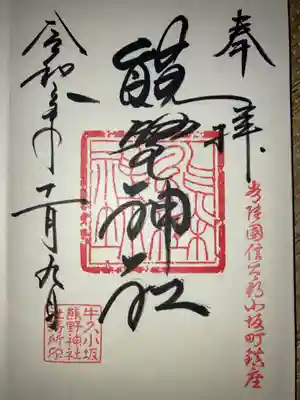 奉拝
常陸國信太郡小坂町鎮座
熊野神社
令和
年十一月九日
牛久小坂
熊野神社
社務所印